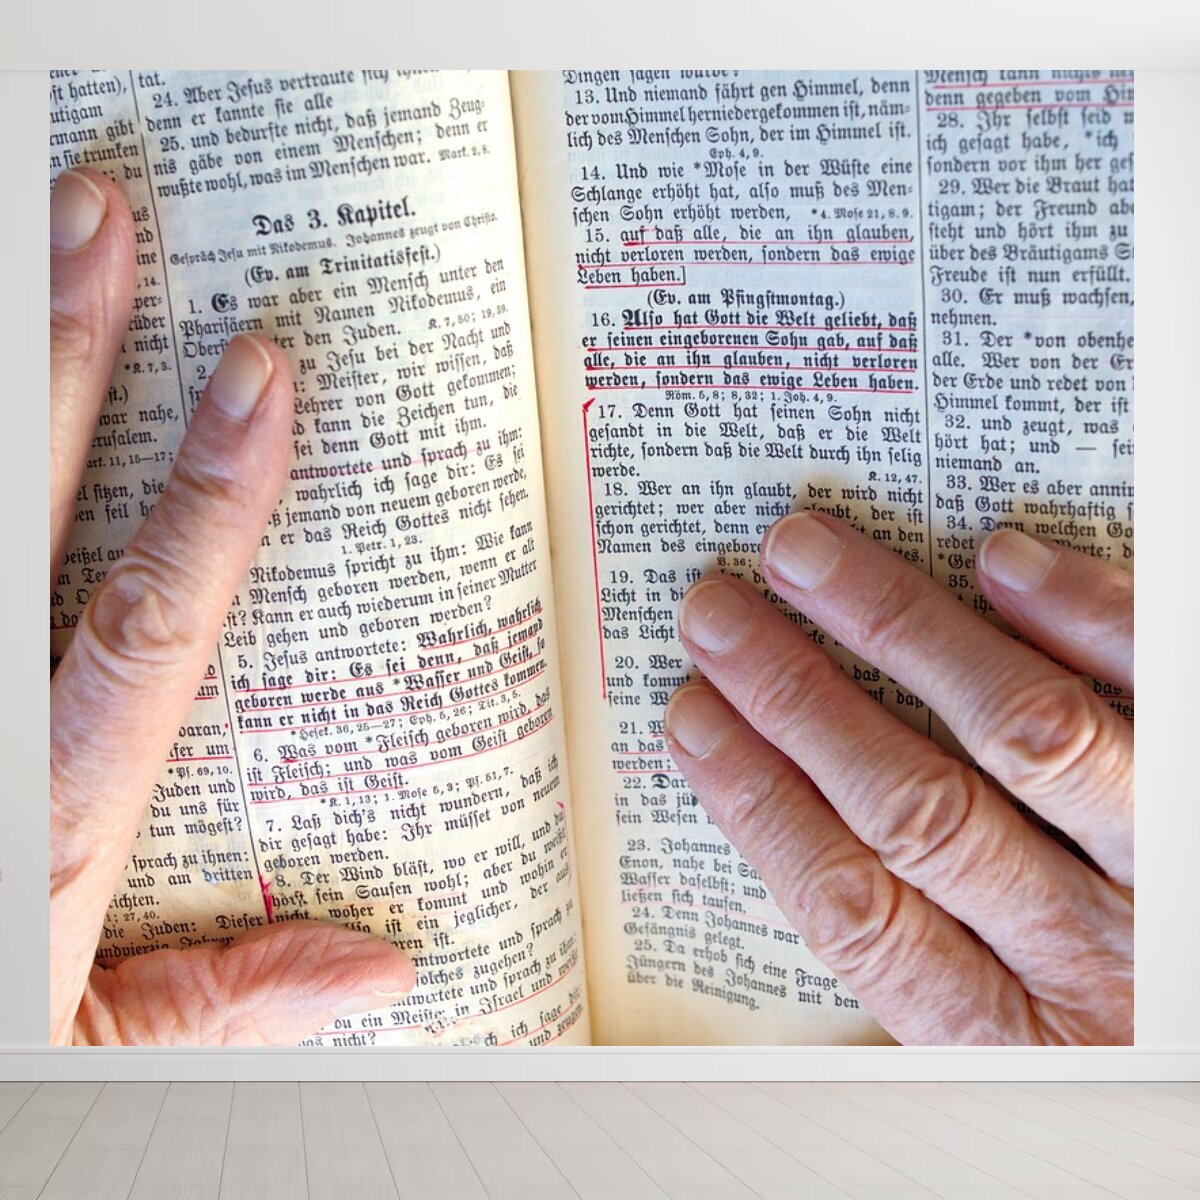 ft hatten),
utigam
rmann gibt
n sie trunken
; du
us
nd
ine
, 14.
per=
rüder
nicht
* K. 7, 3.
st.)
war nahe,
erusalem.
ark. 11, 15—17;
el sitzen, die
en feil h
Geißel au
tat.
24. Aber Jesus vertraute sich
denn er kannte sie alle
25. und bedurfte nicht, daß jemand Zeug=
nis gäbe von einem Menschen; denn er
wußte wohl, was im Menschen war. Mark. 2, 8.
Das 3. Kapitel.
Gespräch Jesu mit Nikodemus. Johannes zeugt von Christo.
(Ev. am Trinitatisfest.)
1. Es war aber ein Mensch unter den
Pharisäern mit Namen Nikodemus, ein
Ober ter den Juden. K. 7, 50; 19, 39.
2. zu Jesu bei der Nacht und
: Meister, wir wissen, daß
Lehrer von Gott gekommen;
d kann die Zeichen tun, die
sei denn Gott mit ihm.
antwortete und sprach zu ihm:
, wahrlich ich sage dir: Es sei
ß jemand von neuem geboren werde,
n er das Reich Gottes nicht sehen.
1. Petr. 1, 23.
Nikodemus spricht zu ihm: Wie kann
Mensch geboren werden, wenn er alt
st? Kann er auch wiederum in seiner Mutter
Leib gehen und geboren werden?
5. Jesus antwortete: Wahrlich, wahrlich
ich sage dir: Es sei denn, daß jemand
geboren werde aus *Wasser und Geist, so
kann er nicht in das Reich Gottes kommen.
*Hesek. 36, 25—27; Eph. 5, 26; Tit. 3, 5.
6. Was vom *Fleisch geboren wird, das
ist Fleisch; und was vom Geist geboren
wird, das ist Geist.
* K. 1, 13; 1. Mose 5, 3; Ps. 51, 7.
7. Laß dich's nicht wundern, daß ich
dir gesagt habe: Ihr müsset von neuem
geboren werden.
8. Der Wind bläst, wo er will, und du
hörst sein Sausen wohl; aber du weißt
nicht, woher er kommt und wohin er
Also ist ein jeglicher, der aus
ren ist.
antwortete und sprach zu
solches zugehen?
antwortete und sprach zu ihm:
du ein Meister in Israel und weißt
das nicht?
ch ich sage dir:
und zeugen,
daran,
ser um
*Ps. 69, 10.
Juden und
du uns für
tun mögest?
sprach zu ihnen:
und am dritten
ichten.
; 27, 40.
die Juden: Dieser
undvierzig Jahren
Dingen sagen würde?
13. Und niemand fährt gen Himmel, denn
der vom Himmel herniedergekommen ist, näm=
lich des Menschen Sohn, der im Himmel ist.
Eph. 4, 9.
14. Und wie *Mose in der Wüste eine
Schlange erhöht hat, also muß des Men=
schen Sohn erhöht werden, *4. Mose 21, 8. 9.
15. auf daß alle, die an ihn glauben,
nicht verloren werden, sondern das ewige
Leben haben.]
(Ev. am Pfingstmontag.)
16. Also hat Gott die Welt geliebt, daß
er seinen eingeborenen Sohn gab, auf daß
alle, die an ihn glauben, nicht verloren
werden, sondern das ewige Leben haben.
Röm. 5, 8; 8, 32; 1. Joh. 4, 9.
17. Denn Gott hat seinen Sohn nicht
gesandt in die Welt, daß er die Welt
richte, sondern daß die Welt durch ihn selig
werde.
K. 12, 47.
18. Wer an ihn glaubt, der wird nicht
gerichtet; wer aber nicht glaubt, der ist
schon gerichtet, denn er an den
Namen des eingebore ttes.
B. 36;
19. Das ist
Licht in di
Menschen
das Licht
20. Wer das
und kommt auf daß
seine W
21. W
an das
werden;
22. Dar
in das jü
sein Wesen
23. Johannes
Enon, nahe bei Sa
Wasser daselbst; und
ließen sich taufen.
24. Denn Johannes war
Gefängnis gelegt.
25. Da erhob sich eine Frage
Jüngern des Johannes mit den
über die Reinigung.
Mensch kann nichts
denn gegeben vom Him
28. Ihr selbst seid
ich gesagt habe, *ich
sondern vor ihm her ges
29. Wer die Braut hat
tigam; der Freund abe
steht und hört ihm zu
über des Bräutigams S
Freude ist nun erfüllt.
30. Er muß wachsen,
nehmen.
31. Der *von obenhe
alle. Wer von der Er
der Erde und redet von
Himmel kommt, der ist
32. und zeugt, was
hört hat; und — sei
niemand an.
33. Wer es aber annim
daß Gott wahrhaftig s
34. Denn welchen Go
redet Worte; d
*Gei
35.
ih
das